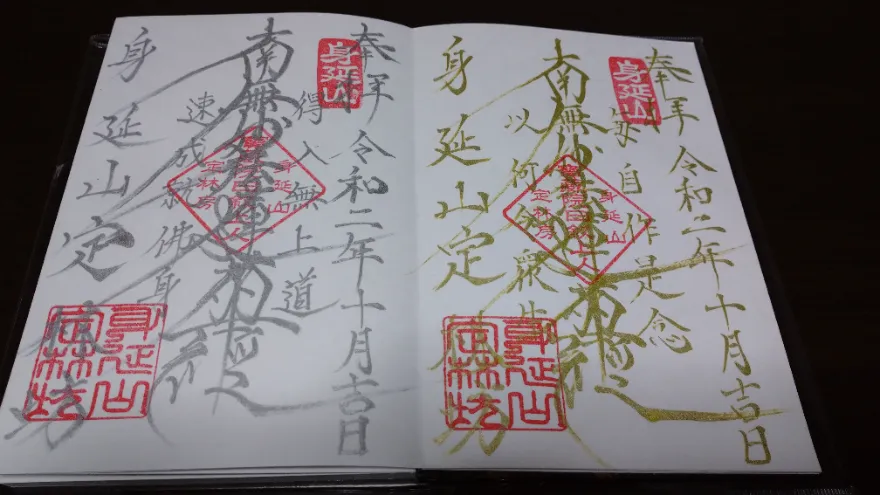 奉拝 令和二年十月吉日
身延山
毎自作是念
南無妙法蓮華経
以何令衆生
身延山
定林房
身延山定林坊
身延山
定林坊
奉拝 令和二年十月吉日
身延山
得入無上道
南無妙法蓮華経
速成就佛身
身延山
定林房
身延山定林坊
身延山
定林坊